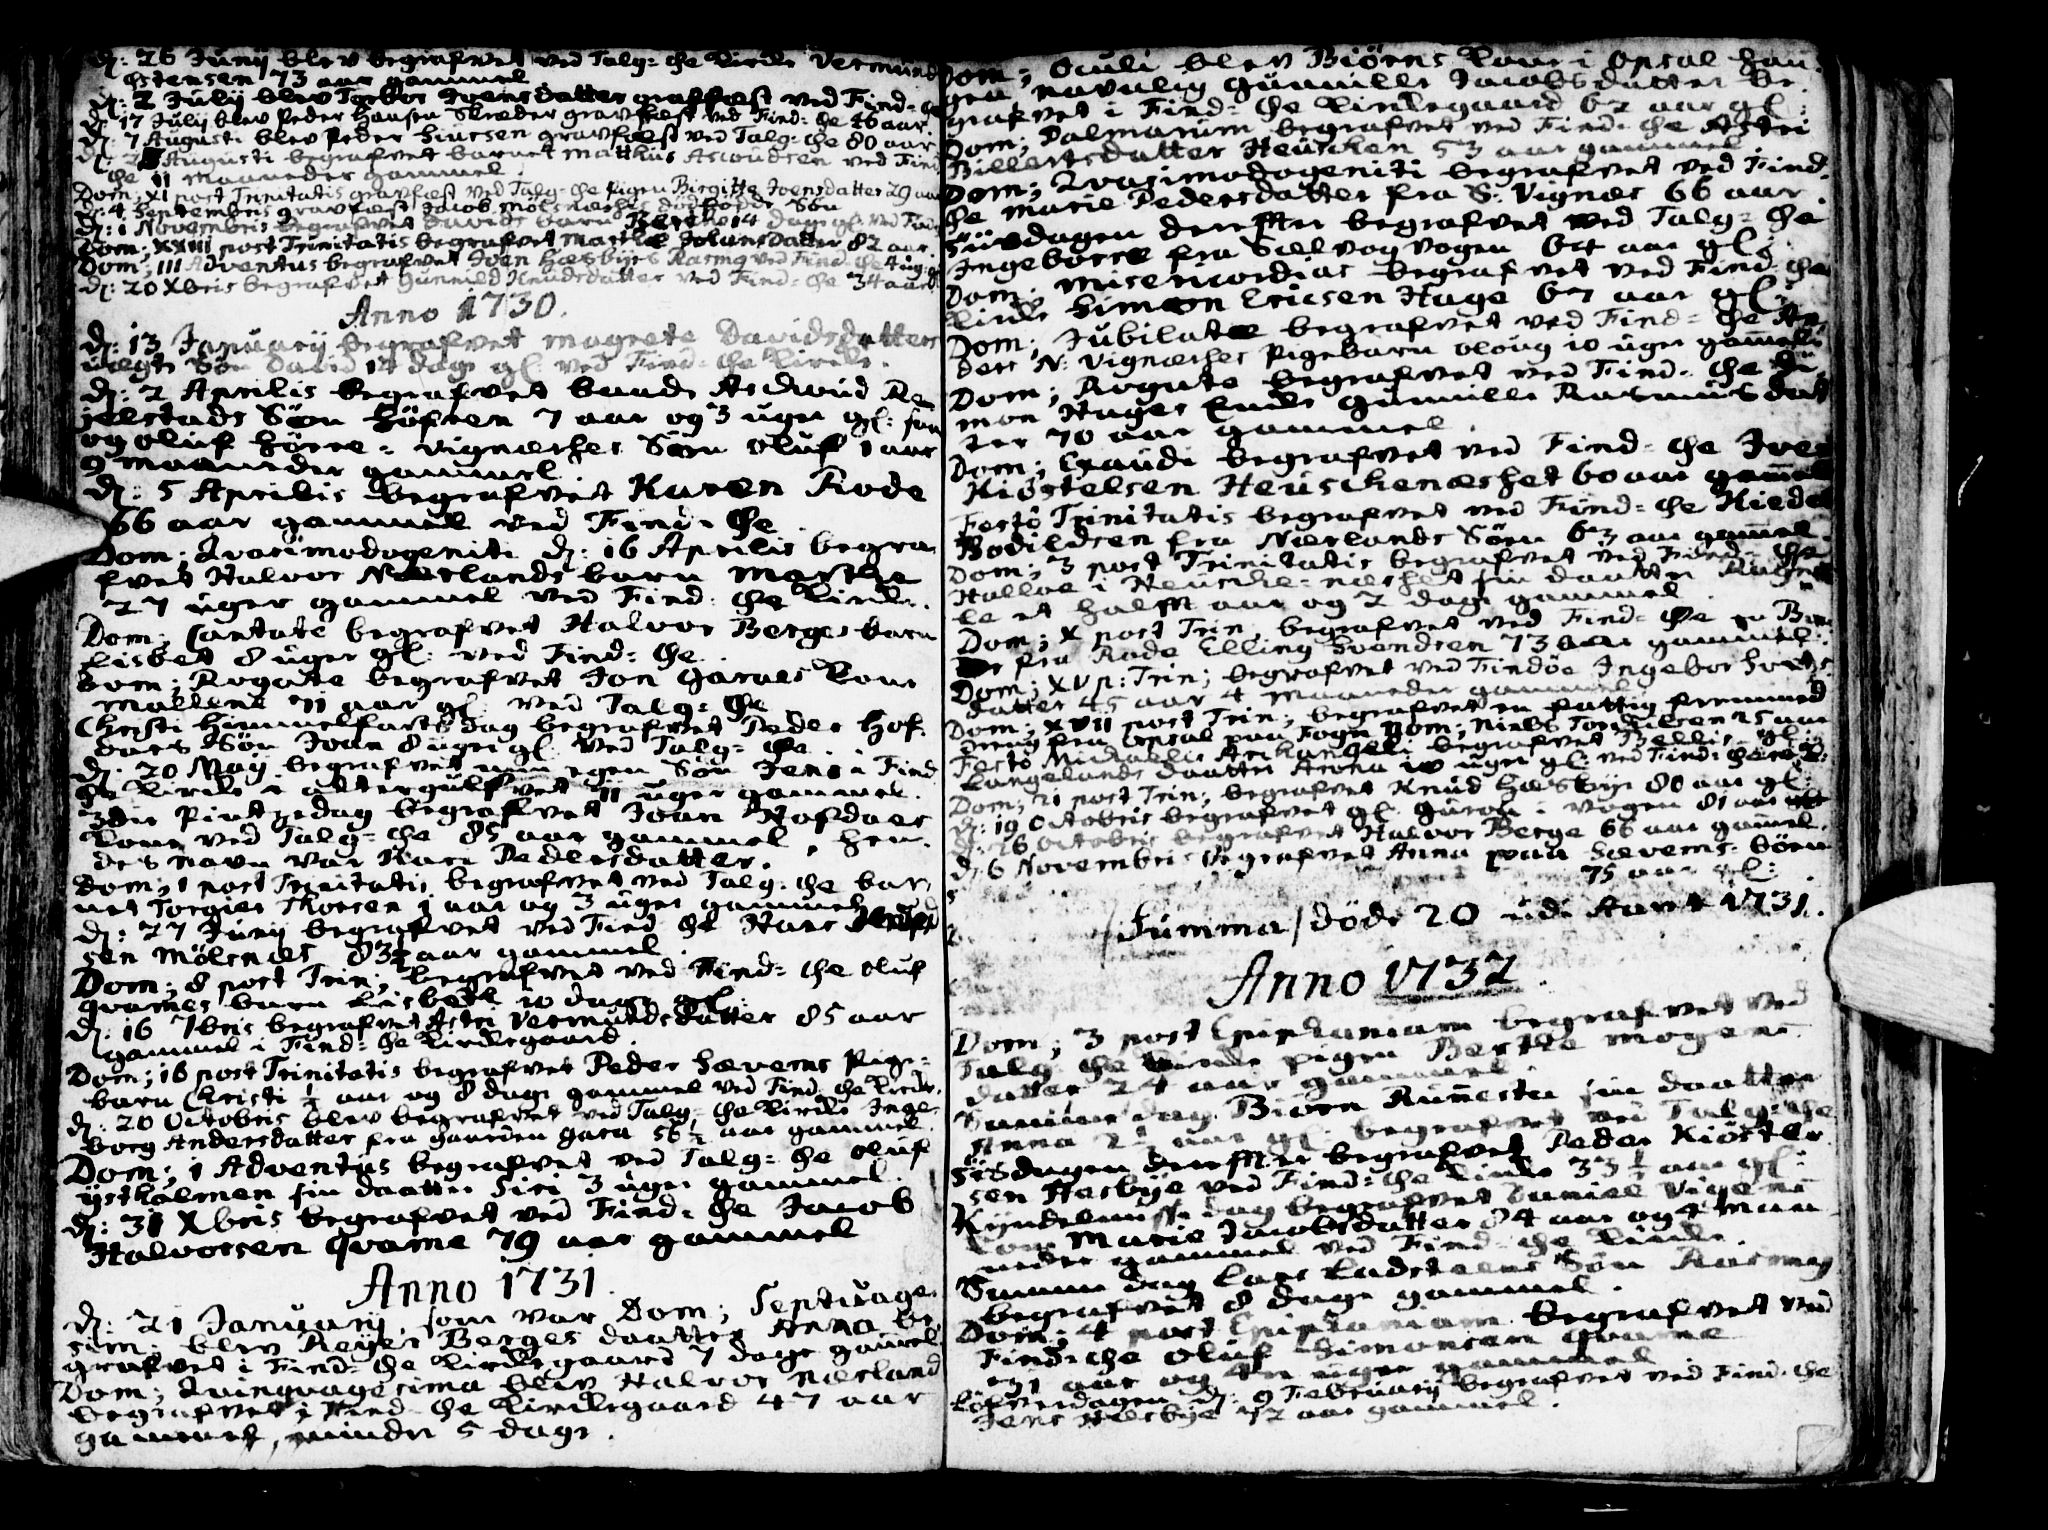 d: 26 Junij blev begrafvet ved Talg- öe Kirche Vermund
Ostensen 73 aar gammel
d: 2 Julij blev Torbor Joensdatter graffæst ved Find- öe
d: 17 Julij blev Peder Hansen Skræder gravfæst ved Find- öe 46 aar
d: 7 Augusti blev Peder Siursen gravfæst ved Talg- öe 80 aar
Augusti begrafvet barnet Matthis Asvoudsen ved Find
öe 11 maaneder gammel.
Dom; XI post Trinitatis gravfæst ved Talg- öe pigen Birgitte Joensdatter 29 aar
d: 4 Septembris gravfæst Jacob Molsnæshes dödfödde Sön
d: 1 Novembris begrafvet Davids barn Berthe 14 dage gl: ved Find
Dom; XXIII post Trinitatis begrafvet Marthe Johansdatter 82 aar
Dom; III Adventus begrafvet Joen Hæsbyes Rasmg ved Find- öe 4 ug: gl
d: 20 Xbris begrafvet Gunnild Knudsdatter ved Find- öe 34 aar
Anno 1730.
d: 13 Januarij begrafvet Magrete Davidsdatters
uægte Sön David 14 dage gl: ved Find- öe Kirche.
d: 2 Aprilis begrafvet baade Asvoud
jelstads Sön 7 aar og 3 uger gl:
og Oluf Sörre- Vignæshes Sön Oluf 1 aar
9 maaneder gammel
d: 5 Aprilis begrafvet Karen Rode
66 aar gammel ved Find- öe
Dom; Qvasimodogeniti d: 16 Aprilis begra
fvet Halvor Nærlands barn Marthe
27 uger gammel ved Find- öe Kirche.
Dom; Cantate begrafvet Halvor Berges barn
Lisbet 8 uger gl: ved Find- öe.
Dom; Rogate begrafvet Jon Garaes Kone
71 aar gl: ved Talg- öe
Christi Himmelfarts dag begrafvet Peder Hof-
daes Sön Joan 8 uger gl: ved Talg- öe.
d: 20 Maij begrafvet min egen Sön Jens i Find
öe Kirche i altergulfvet 11 uger gammel.
3die Pintzedag begrafvet Joan Hofdaes
Kone ved Talg- öe 85 aar gammel, hen-
des navn var Pedersdatter.
Dom; 1 post Trinitatis begrafvet ved Talg- öe bar
net Torgier Thorsen 1 aar og 3 uger gammel
d: 27 Junij begrafvet ved Find- öe Hans
sen Mölsnæs 83½ aar gammel.
Dom; 8 post Trin; begrafvet ved Find- öe Oluf
Qvames barn Lisbeth 10 dage gl:
d: 16 7bris begrafvet Astri Vermundsdatter 85 aar
gammel i Find- öe Kirchegaard.
Dom; 16 post Trinitatis begrafvet Peder Sæverns Pige-
barn Christi ½ aar og 8 dage gammel ved Find- öe Kirche.
d: 20 Octobris blev begrafvet ved Talg- öe Kirche Inge
borg Andersdatter fra gaarden Gara 56½ aar gammel
Dom; 1 Adventus begrafvet ved Talg- öe Oluf
ystholmen sin daatter Siri 3 uger gammel.
d: 31 Xbris begrafvet ved Find- öe Jacob
Halvorsen Qvame 79 aar gammel
Anno 1731.
d: 21 Januarij, som var Dom; Septuage
sim; blev Reyer Berges daatter Anna be
grafvet i Find- öe Kirchegaard 7 dage gammel
Dom; Qvinqvagesima blev Halvor Nærland
begrafvet i Find- öe Kirchegaard 47 aar
gammel, minder 5 dage.
Dom; Oculi blev Biörns Kone i Opsal Hau
gen navnlig Gunnille Jacobsdatter be-
grafvet i Find- öe Kirchegaard 62 aar gl:
Dom; Palmarum begrafvet ved Find- öe Astri
Billertsdatter Heusken 53 aar gammel
Dom; Qvasimodogeniti begrafvet ved Find-
öe Marie Pedersdatter fra S: Vignæs 66 aar
Tiisdagen derefter begrafvet ved Talg- öe
Ingeborre fra Sælvog vogen 64 aar gl:
Dom; Misericordias begrafvet ved Find- öe
Kirche Simon Ericsen Hage 67 aar gl:
Dom; Jubilate begrafvet ved Find- öe
ders N: Vignæshes Pigebarn Oloug 10 uger gammel
Dom; Rogate begrafvet ved Find- öe Si
mon Hages Encke Gunnille Rasmusdat
ter 70 aar gammel.
Dom; Exaudi begrafvet ved Find- öe Iver
Kiöstelsen Heuschenæshet 60 aar gammel
Festo Trinitatis begrafvet ved Find- öe Kiedel
Bodildsen fra Nærlands Söen 63 aar gammel.
Dom; 3 post Trinitatis begrafvet ved Find- öe
Halloe i Heusche- næshet sin daatter
le et halft aar og 2 dage gammel.
Dom; X post Trin; begrafvet ved Find- öe
fra Rode Elling Svendsen 73 aar gammel.
Dom; XV p: Trin; begrafvet ved Findöe Ingebor
datter 45 aar 4 maaneder gammel
Dom; XVII post Trin; begrafvet en fattig fremmed
dreng fra Opsal paa Fogn Dom; Niels 25 aar
Festo Michaelis Archangeli begrafvet gl:
Langelands daatter Anna 10 uger gl: ved Find- öe
Dom; 21 post Trin; begrafvet Knud Hæsbye 80 aar gl:
d: 19 Octobris begrafvet gl: Guron i Vogen 81 aar
d: 26 Octobris begrafvet Halvor Berge 66 aar gammel.
d: 6 Novembris begrafvet Anna paa Sæverns- böen
75 aar gl:
Summa / döde 20 udi Aaret 1731.
Anno 1732.
Dom; 3 post Epiphaniam begrafvet ved
Talg- öe Kirche pigen Berthe Mogens
datter 24 aar gammel
Samme dag Biörn Runestu sin daatter
Anna 2½ aar gl: begrafvet ved Talg- öe
Tiisdagen derefter begrafvet Peder Kiöster
sen Hesbye ved Find- öe Kirche 33½ aar gl:
Kyndelmisse dag begrafvet Daniel Viges
Kone Marie Jacobsdatter 84 aar og 4 maa
neder gammel ved Find- öe Kirche.
Samme dag Lars Ladsteens Sön Rasmus
begrafvet 8 dage gammel.
Dom; 4 post Epiphaniam begrafvet ved
Find- öe Oluf Simonsen Qvame
31 aar og uger gammel
Löfverdagen d: 9 Februarij begrafvet ved Find- öe
Jens Hesbye 72 aar gammel.